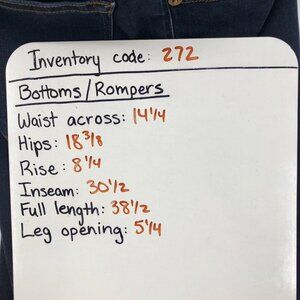 Inventory code: 272
Bottoms/Rompers
Waist across: 14 1/4
Hips: 18 3/8
Rise: 8 1/4
Inseam: 30 1/2
Full length: 38 1/2
Leg opening: 5 1/4